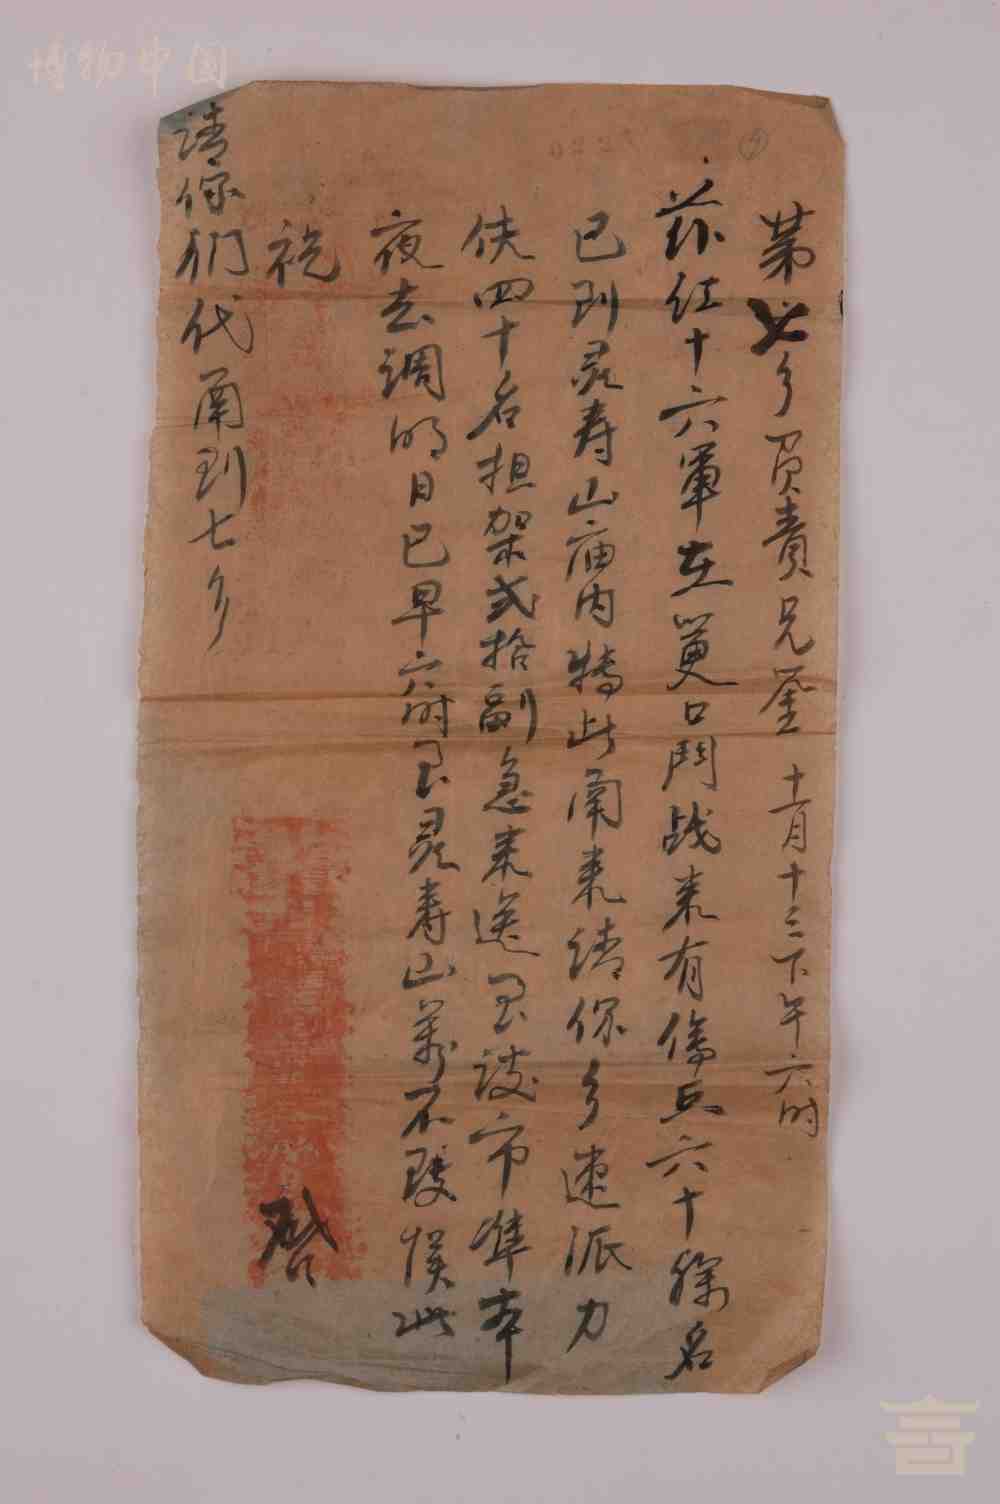 博物中国
第七乡负责兄鉴 十一月十三下午六时
兹红十六軍在箕口鬥战来有伤兵六十餘名
已到灵寿山庙内特此甬来請你乡速派力
伕四十名担架弍拾副急来送至該市準本
夜去調明日已早六时至灵寿山萬不致悮此
祝
啓
請你們代甬到七乡